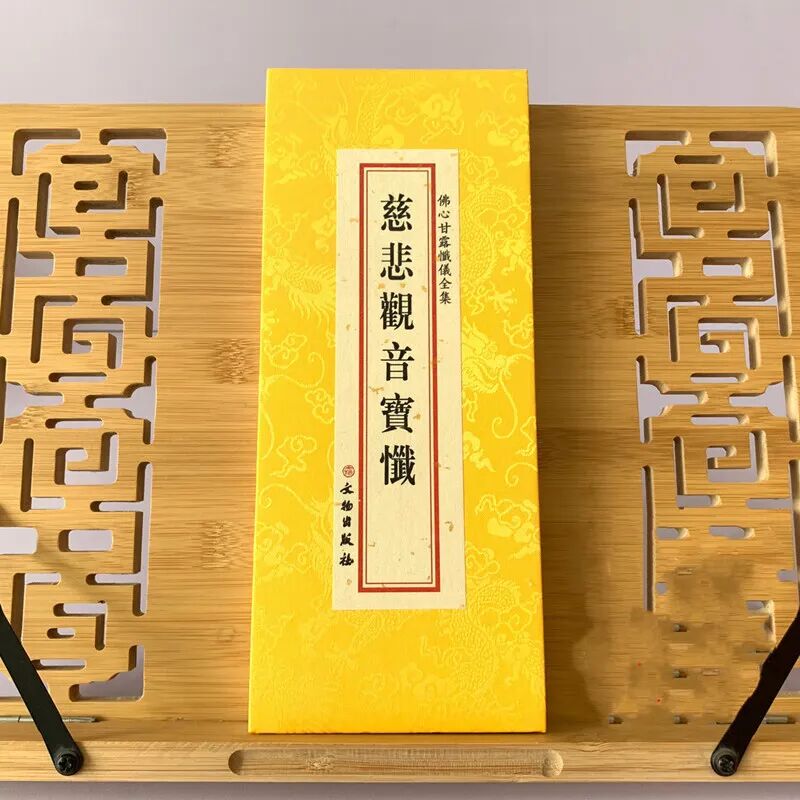 佛心甘露懺儀全集
慈悲觀音寶懺
文物出版社